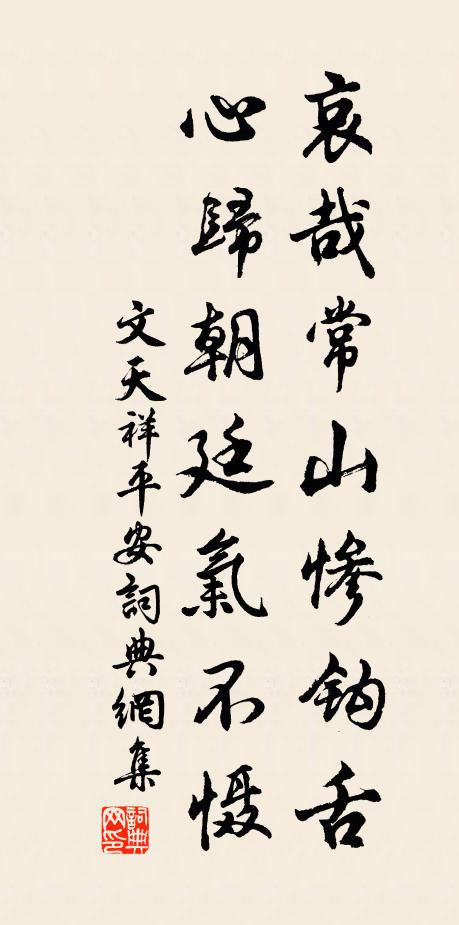 哀哉常山慘鈎舌
心歸朝廷氣不慑
文天祥平安詞典網集
詞典网印